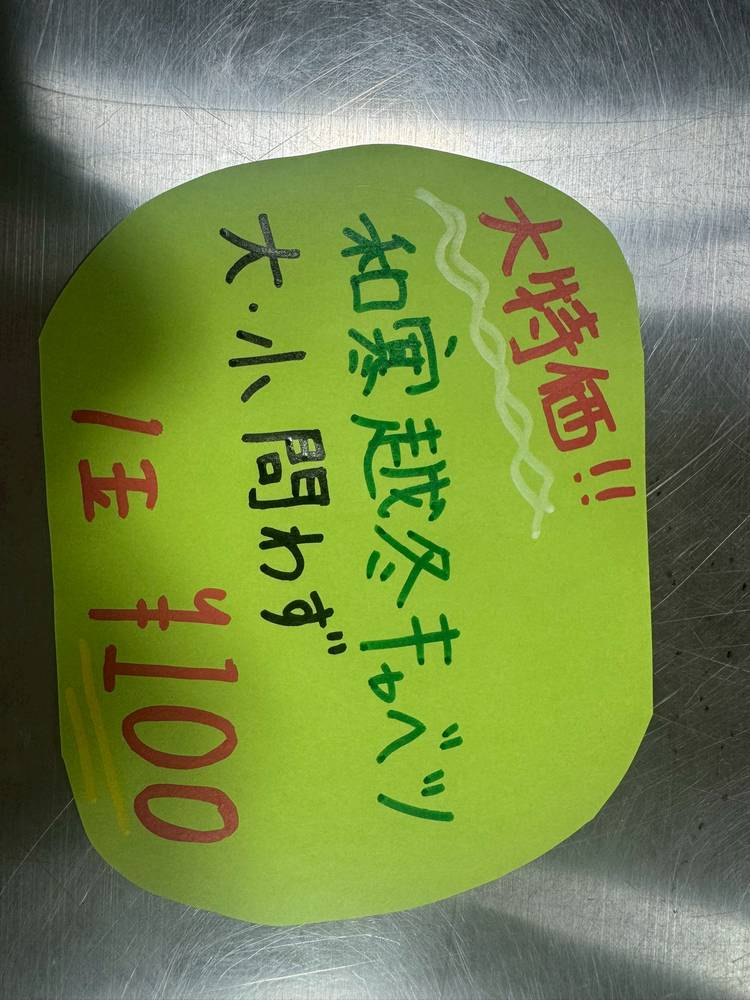 大特価!!
和寒越冬キャベツ
大・小 問わず
1玉 ¥100